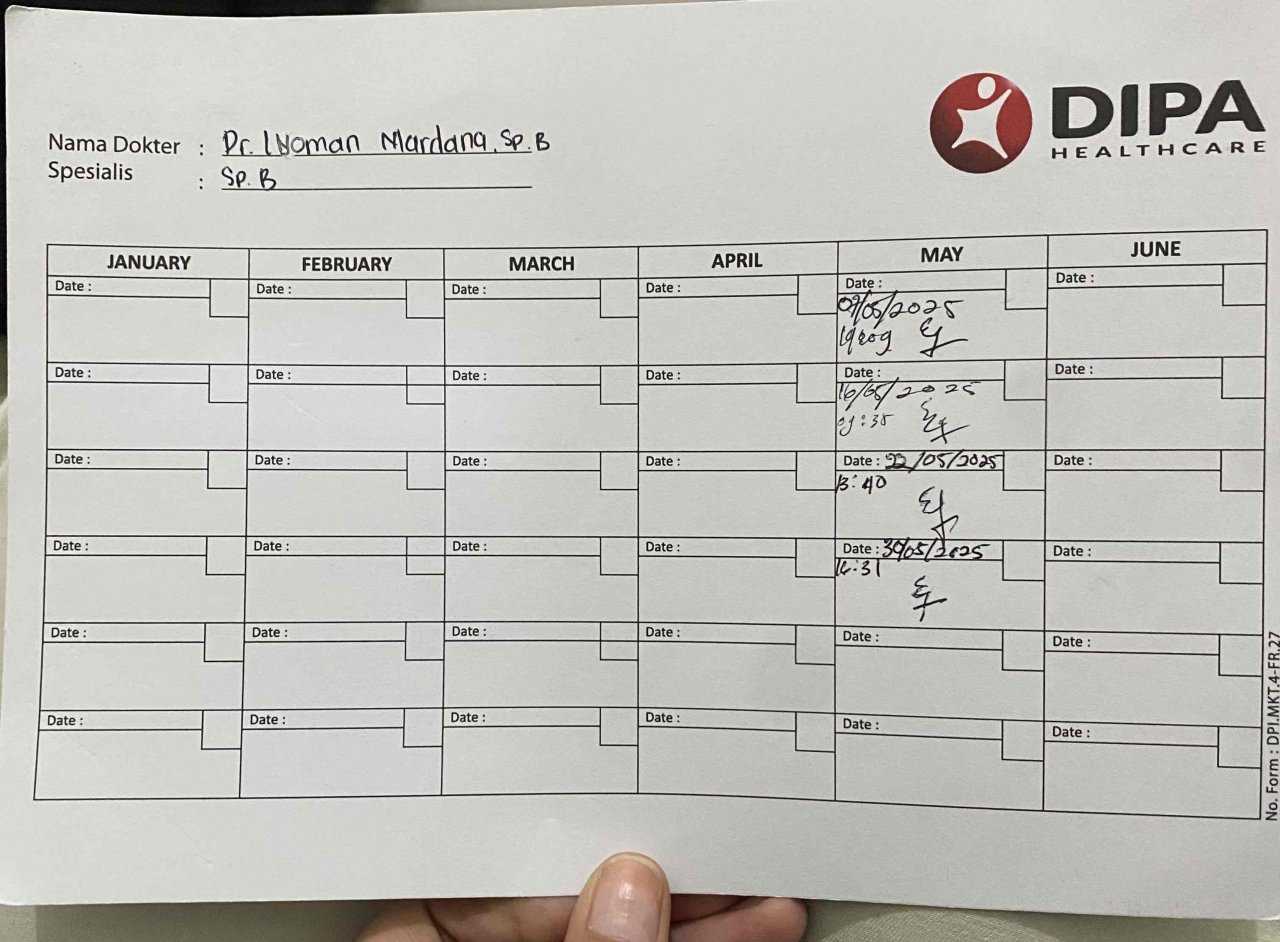 DIPA
HEALTHCARE
Nama Dokter : Dr. I Nyoman Mardana, Sp.B
Spesialis : Sp.B
JANUARY FEBRUARY MARCH APRIL MAY JUNE
Date : Date : Date : Date : Date : Date :
/05/2025
Date : Date : Date : Date : Date : Date :
16/05/2025
09:35
Date : Date : Date : Date : Date : 22/05/2025 Date :
13:40
Date : Date : Date : Date : Date : 30/05/2025 Date :
16:31
Date : Date : Date : Date : Date : Date :
Date : Date : Date : Date : Date : Date :
No. Form : DPI.MKT.4-FR.27